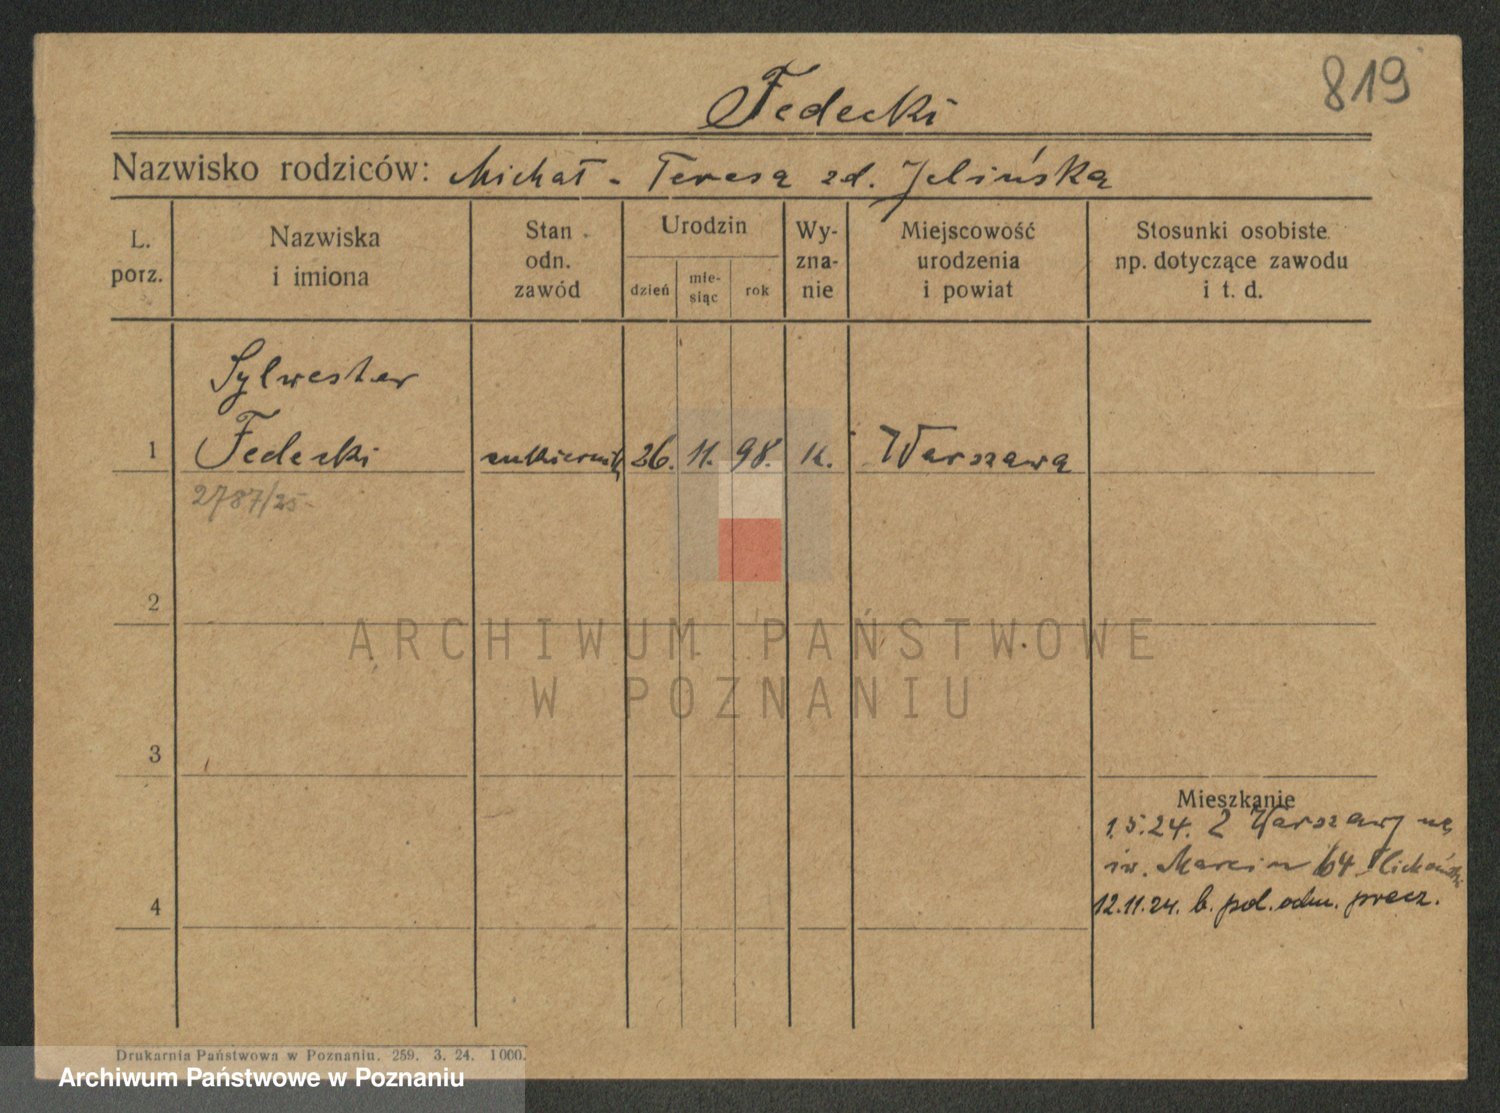 819
Fedecki
Nazwisko rodziców: Michał - Teresa zd. Jelińska
L. porz.
Nazwiska i imiona
Stan odn. zawód
Urodzin
dzień
mie-siąc
rok
Wy-zna-nie
Miejscowość urodzenia i powiat
Stosunki osobiste np. dotyczące zawodu i t. d.
Sylwester
1 Fedecki cukiernik 26. 11. 98. k. Warszawa
2787/25
2
ARCHIWUM PAŃSTWOWE
W POZNANIU
3
Mieszkanie
1.5.24. Z Warszawy na
św. Marcin 64
12.11.24. b. pol. odm. przez.
4
Drukarnia Państwowa w Poznaniu. 259. 3. 24. 1000.
Archiwum Państwowe w Poznaniu